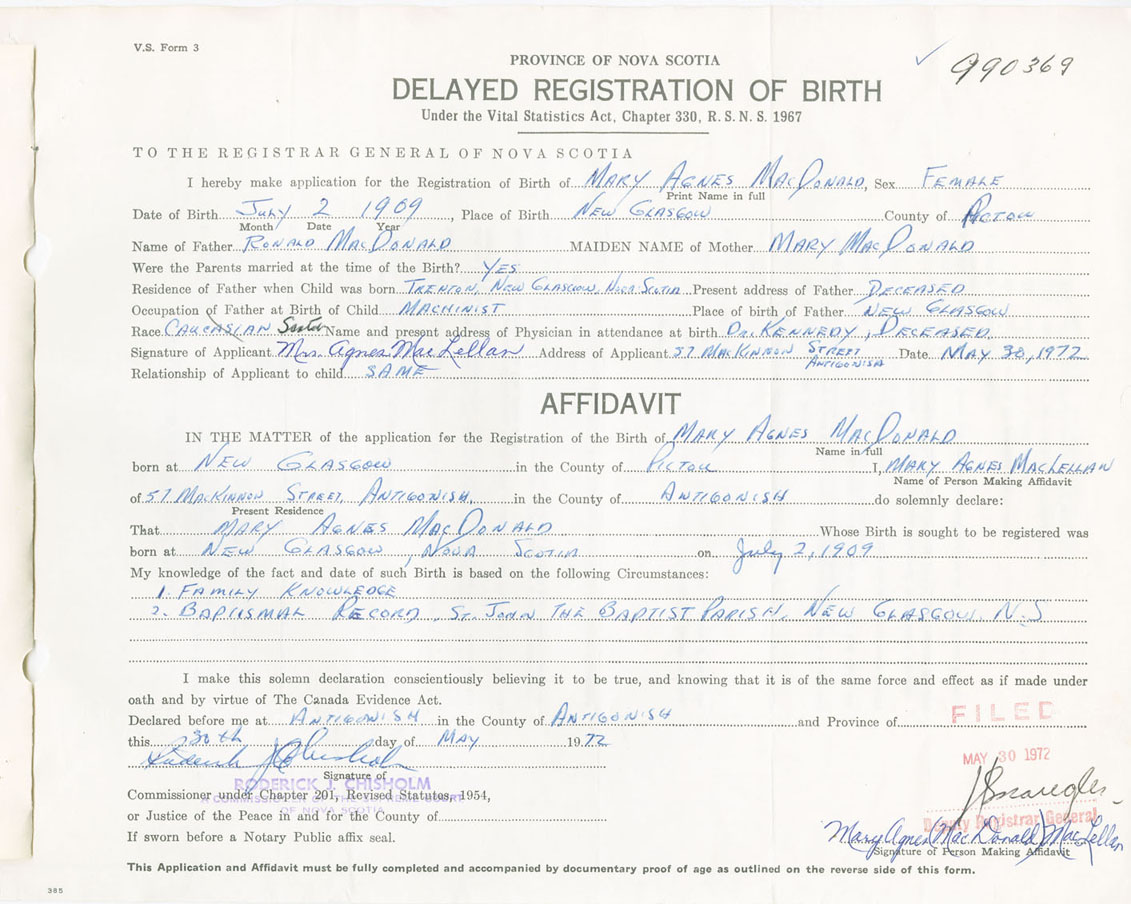 V.S. Form 3
990369
PROVINCE OF NOVA SCOTIA
DELAYED REGISTRATION OF BIRTH
Under the Vital Statistics Act, Chapter 330, R. S. N. S. 1967
TO THE REGISTRAR GENERAL OF NOVA SCOTIA
I hereby make application for the Registration of Birth of MARY AGNES MACDONALD, Sex FEMALE
Print Name in full
Date of Birth July 2 1909, Place of Birth NEW GLASGOW County of PICTOU
Month Date Year
Name of Father RONALD MACDONALD MAIDEN NAME of Mother MARY MACDONALD
Were the Parents married at the time of the Birth? YES
Residence of Father when Child was born TRENTON, NEW GLASGOW, NOVA SCOTIA Present address of Father DECEASED
Occupation of Father at Birth of Child MACHINIST Place of birth of Father NEW GLASGOW
Race CAUCASIAN Name and present address of Physician in attendance at birth DR. KENNEDY, DECEASED
Signature of Applicant Mrs. Agnes MacLellan Address of Applicant 57 MACKINNON STREET Date MAY 30, 1972
ANTIGONISH
Relationship of Applicant to child SAME
AFFIDAVIT
IN THE MATTER of the application for the Registration of the Birth of MARY AGNES MACDONALD
Name in full
born at NEW GLASGOW in the County of PICTOU I, MARY AGNES MACLELLAN
Name of Person Making Affidavit
of 57 MACKINNON STREET, ANTIGONISH, in the County of ANTIGONISH do solemnly declare:
Present Residence
That MARY AGNES MACDONALD Whose Birth is sought to be registered was
born at NEW GLASGOW, NOVA SCOTIA on July 2, 1909
My knowledge of the fact and date of such Birth is based on the following Circumstances:
1. FAMILY KNOWLEDGE
2. BAPTISMAL RECORD, ST. JOHN THE BAPTIST PARISH, NEW GLASGOW, N.S
I make this solemn declaration conscientiously believing it to be true, and knowing that it is of the same force and effect as if made under
oath and by virtue of The Canada Evidence Act.
Declared before me at ANTIGONISH in the County of ANTIGONISH and Province of
FILED
this 30th day of MAY 1972
MAY 30 1972
Roderick J Chisholm
Signature of
RODERICK J. CHISHOLM
A COMMISSIONER OF THE SUPREME COURT
OF NOVA SCOTIA
Commissioner under Chapter 201, Revised Statutes, 1954,
or Justice of the Peace in and for the County of
Deputy Registrar General
If sworn before a Notary Public affix seal.
Mary Agnes MacDonald MacLellan
Signature of Person Making Affidavit
This Application and Affidavit must be fully completed and accompanied by documentary proof of age as outlined on the reverse side of this form.
385